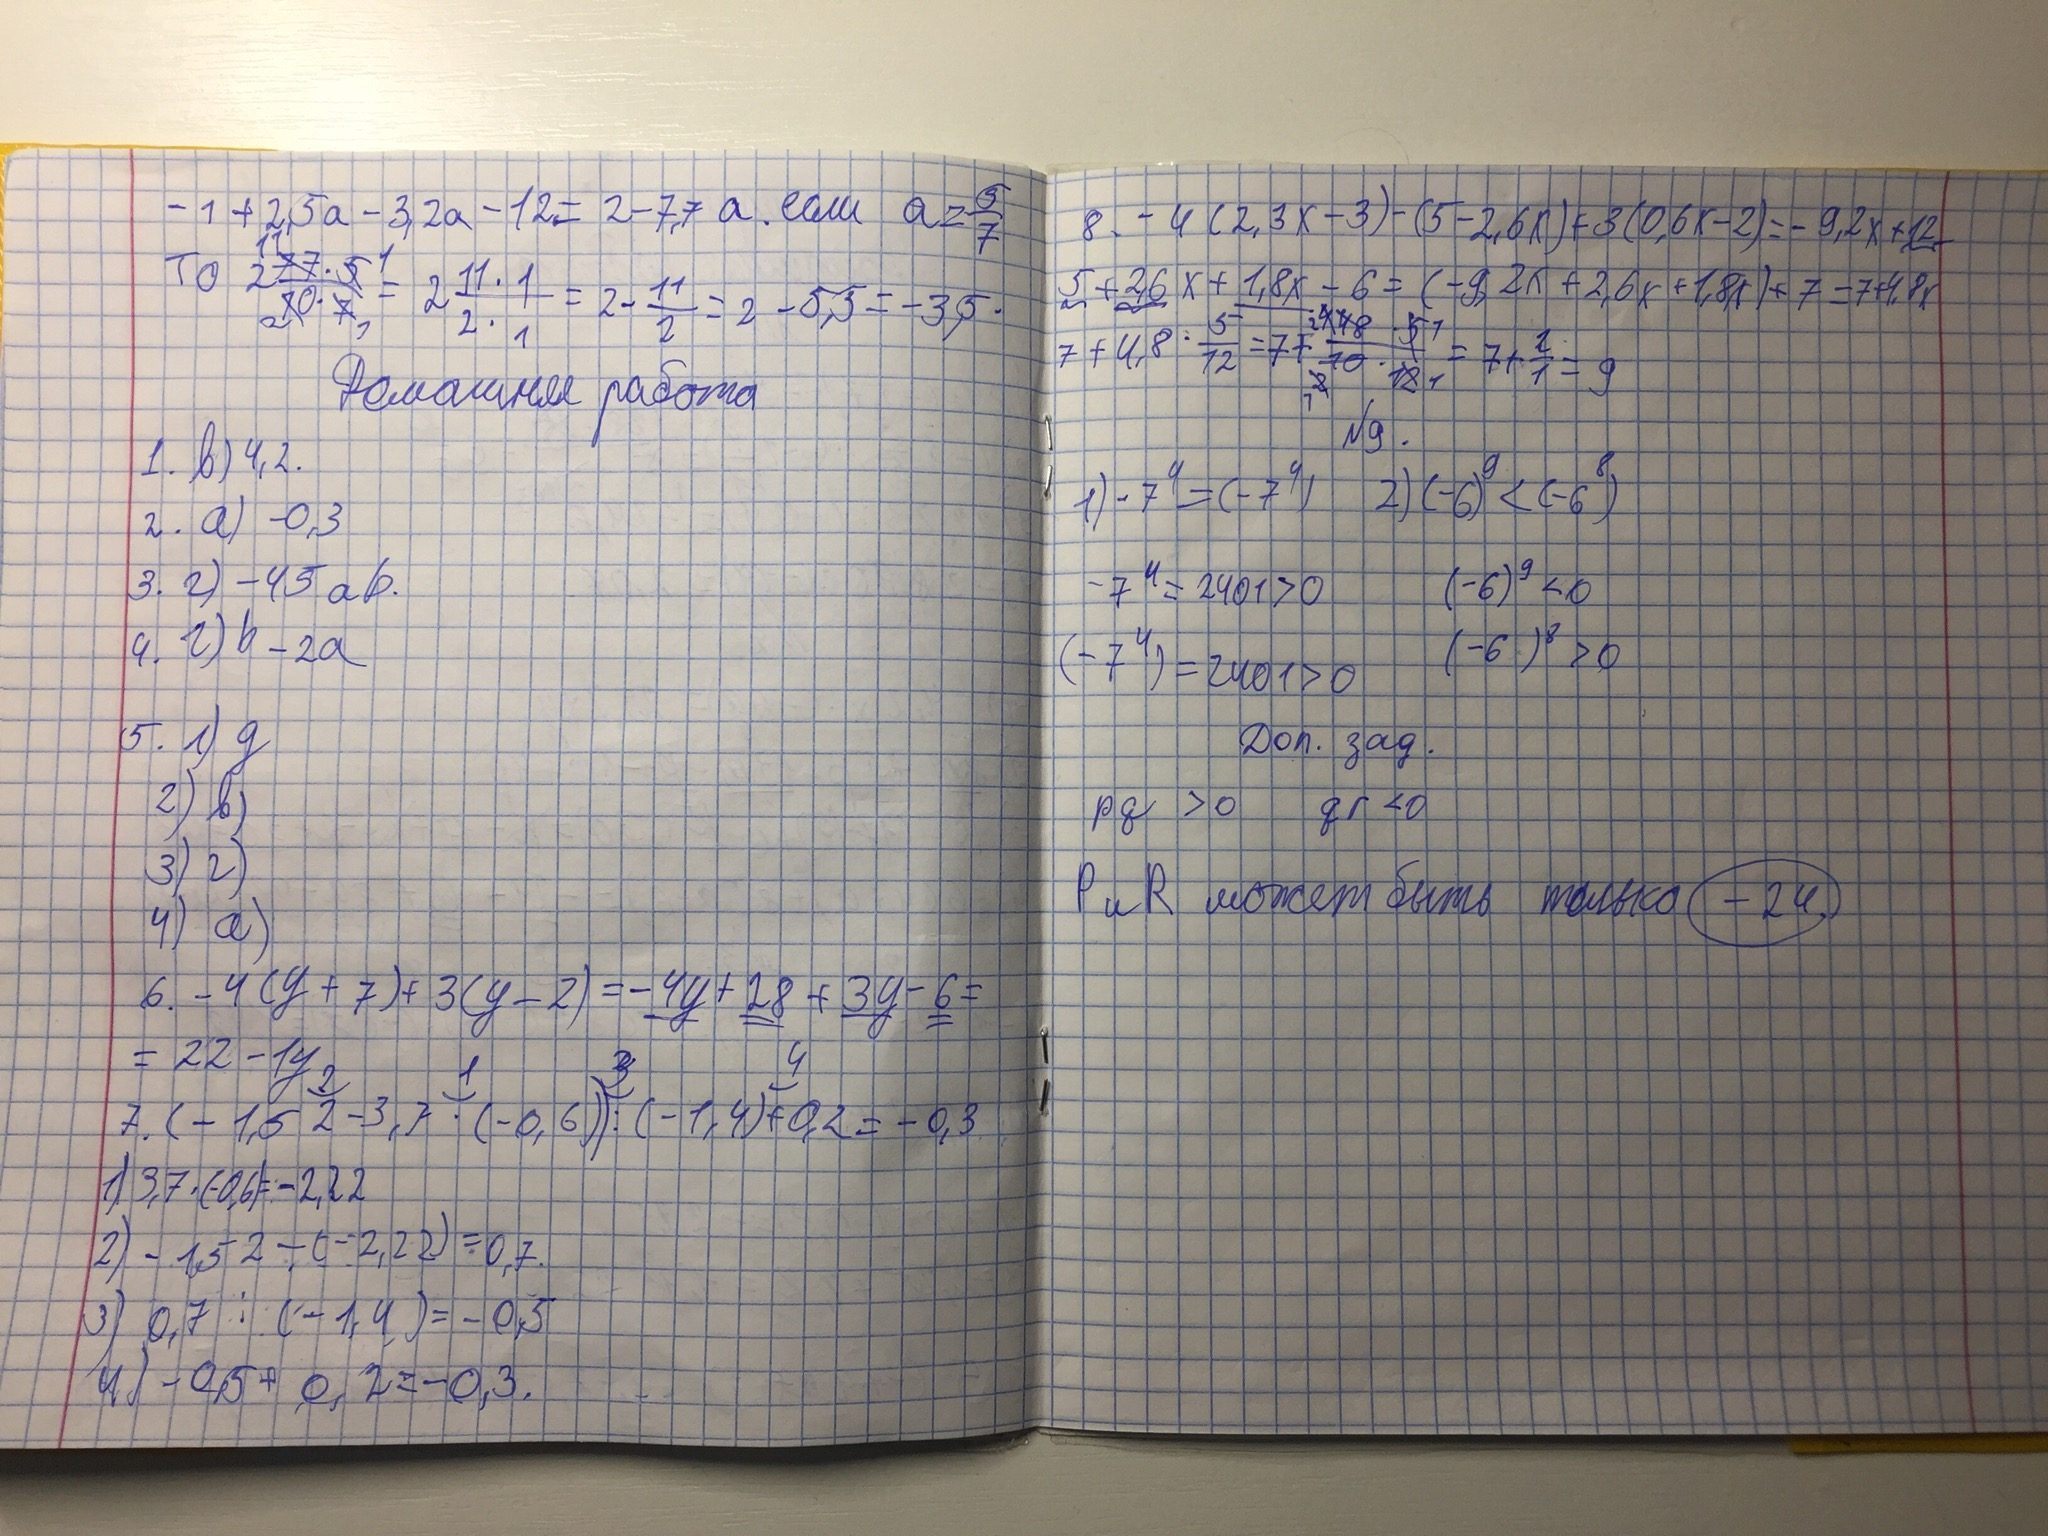 -1+2,5a-3,2a-12=2-7,7a. если a=5/7
То 2 77·5/10·7 = 2 11·1/2·1 = 2-11/2=2-5,5=-3,5.
Домашняя работа
1. в) 4,2.
2. а) -0,3
3. г) -45ab.
4. г) b-2a
5. 1) д
2) в)
3) г)
4) а)
6. -4(y+7)+3(y-2)=-4y+28+3y-6=
=22-1y
2 1 3 4
7. (-1,52-3,7·(-0,6)):(-1,4)+0,2=-0,3
1) 3,7·(-0,6)=-2,22
2) -1,52-(-2,22)=0,7.
3) 0,7:(-1,4)=-0,5
4) -0,5+0,2=-0,3.
8. -4(2,3x-3)-(5-2,6x)+3(0,6x-2)=-9,2x+12-
5+2,6x+1,8x-6=(-9,2x+2,6x+1,8x)+7=7+4,8x
7+4,8·5/12=7+48·5/10·12=7+2/1=9
№9.
1) -7⁴=(-7⁴) 2) (-6)⁹<(-6⁸)
-7⁴=2401>0 (-6)⁹<0
(-7⁴)=2401>0 (-6)⁸>0
Доп. зад.
pq >0 qr <0
P и R может быть только -24.